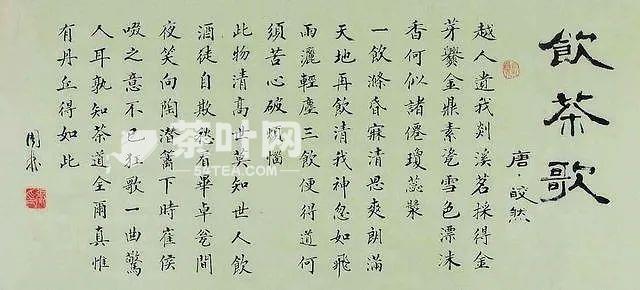 飲茶歌
唐·皎然
越人遺我剡溪茗採得金
芽爨金鼎素瓷雪色漂沫
香何似諸僊瓊蕊漿
一飲滌昏寐清思爽朗滿
天地再飲清我神忽如飛
雨灑輕塵三飲便得道何
須苦心破煩惱
此物清高世莫知世人飲
酒徒自欺愁看畢卓瓮間
夜笑向陶潛籬下時崔侯
啜之意不已狂歌一曲驚
人耳孰知茶道全爾真惟
有丹丘得如此
茶叶网